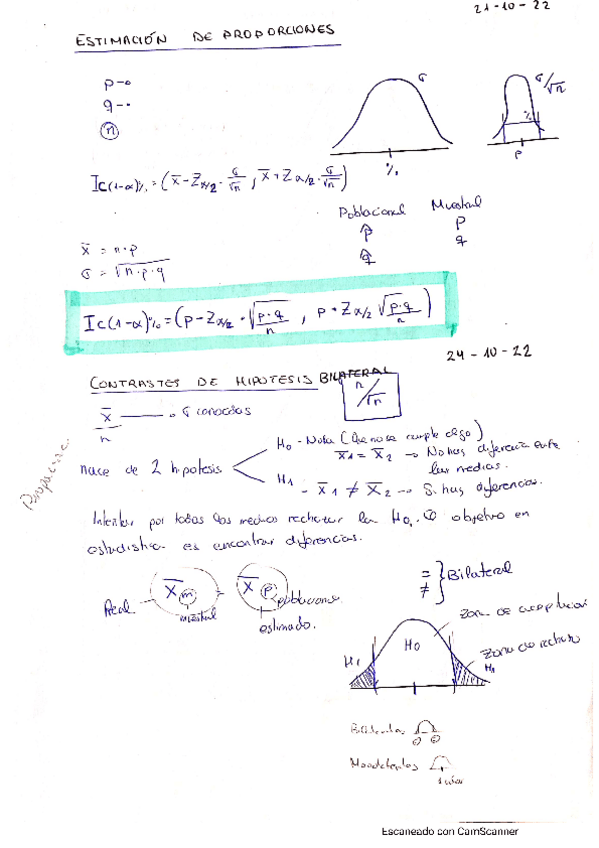 21-10-22
ESTIMACIÓN DE PROPORCIONES
p
q
n
σ
σ/√n
%
%
p
Ic(1-α)% = (x̄ - Zα/2 · σ/√n , x̄ + Zα/2 · σ/√n)
Poblacional Muestral
p̂ p
q̂ q
x̄ = n·p
σ = √n·p·q
Ic(1-α)% = (p - Zα/2 · √p·q/n , p + Zα/2 √p·q/n)
24-10-22
CONTRASTES DE HIPOTESIS BILATERAL
n/√n
x̄ σ conocidas
n
H0 - Nula (Que no se cumple algo)
x̄1 = x̄2 → No hay diferencia entre
las medias.
nace de 2 hipotesis
H1
- x̄1 ≠ x̄2 → Si hay diferencias.
Intentar por todos los medios rechazar la H0. El objetivo en
estadistica es encontrar diferencias.
= ≠ } Bilateral
Real x̄ m muestral
x̄ p poblacional
estimado.
zona de aceptación
H0
zona de rechazo
H1
H1
Bilaterales
Monolaterales
1
Escaneado con CamScanner